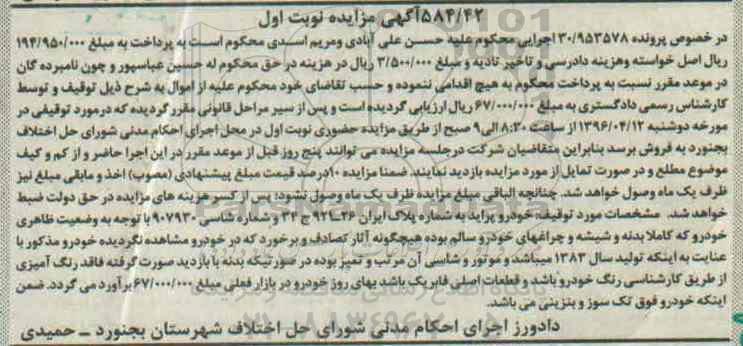 ۵۸۴/۴۲آگهی مزایده نوبت اول
در خصوص پرونده ۳۰/۹۵۳۵۷۸ اجرایی محکوم علیه حسن علی آبادی ومریم اسدی محکوم است به پرداخت به مبلغ ۱۹۴/۹۵۰/۰۰۰
ریال اصل خواسته وهزینه دادرسی و تاخیر تادیه و مبلغ ۳/۵۰۰/۰۰۰ ریال در هزینه در حق محکوم له حسین عباسپور و چون نامبرده گان
در موعد مقرر نسبت به پرداخت محکوم به هیچ اقدامی ننموده و حسب تقاضای خود محکوم علیه از اموال به شرح ذیل توقیف و توسط
کارشناس رسمی دادگستری به مبلغ ۶۷/۰۰۰/۰۰۰ ریال ارزیابی گردیده است و پس از سیر مراحل قانونی مقرر گردیده که درمورد توقیفی در
مورخه دوشنبه ۱۳۹۶/۰۴/۱۲ از ساعت ۸:۳۰ الی ۹ صبح از طریق مزایده حضوری نوبت اول در محل اجرای احکام مدنی شورای حل اختلاف
بجنورد به فروش برسد بنابراین متقاضیان شرکت درجلسه مزایده می توانند پنج روز قبل از موعد مقرر در این اجرا حاضر و از کم و کیف
موضوع مطلع و در صورت تمایل از مورد مزایده بازدید نمایند. ضمنا مزایده ۱۰درصد قیمت مبلغ پیشنهادی (مصوب) اخذ و مابقی مبلغ نیز
ظرف یک ماه وصول خواهد شد. چنانچه الباقی مبلغ مزایده ظرف یک ماه وصول نشود؛ پس از کسر هزینه های مزایده در حق دولت ضبط
خواهد شد. مشخصات مورد توقیف: خودرو پراید به شماره پلاک ایران ۲۶-۹۲۱ ج ۳۴ و شماره شاسی ۹۰۷۹۳۰ با توجه به وضعیت ظاهری
خودرو که کاملا بدنه و شیشه و چراغهای خودرو سالم بوده هیچگونه آثار تصادف و برخورد که در خودرو مشاهده نگردیده خودرو مذکور با
عنایت به اینکه تولید سال ۱۳۸۳ میباشد و موتور و شاسی آن مرتب و تمیز بوده در صورتیکه بدنه با بازدید صورت گرفته فاقد رنگ آمیزی
از طریق کارشناسی رنگ خودرو باشد و قطعات اصلی فابریک باشد بهای روز خودرو در بازار فعلی مبلغ ۶۷/۰۰۰/۰۰۰ برآورد می گردد. ضمن
اینکه خودرو فوق تک سوز و بنزینی می باشد.
دادورز اجرای احکام مدنی شورای حل اختلاف شهرستان بجنورد ـ حمیدی